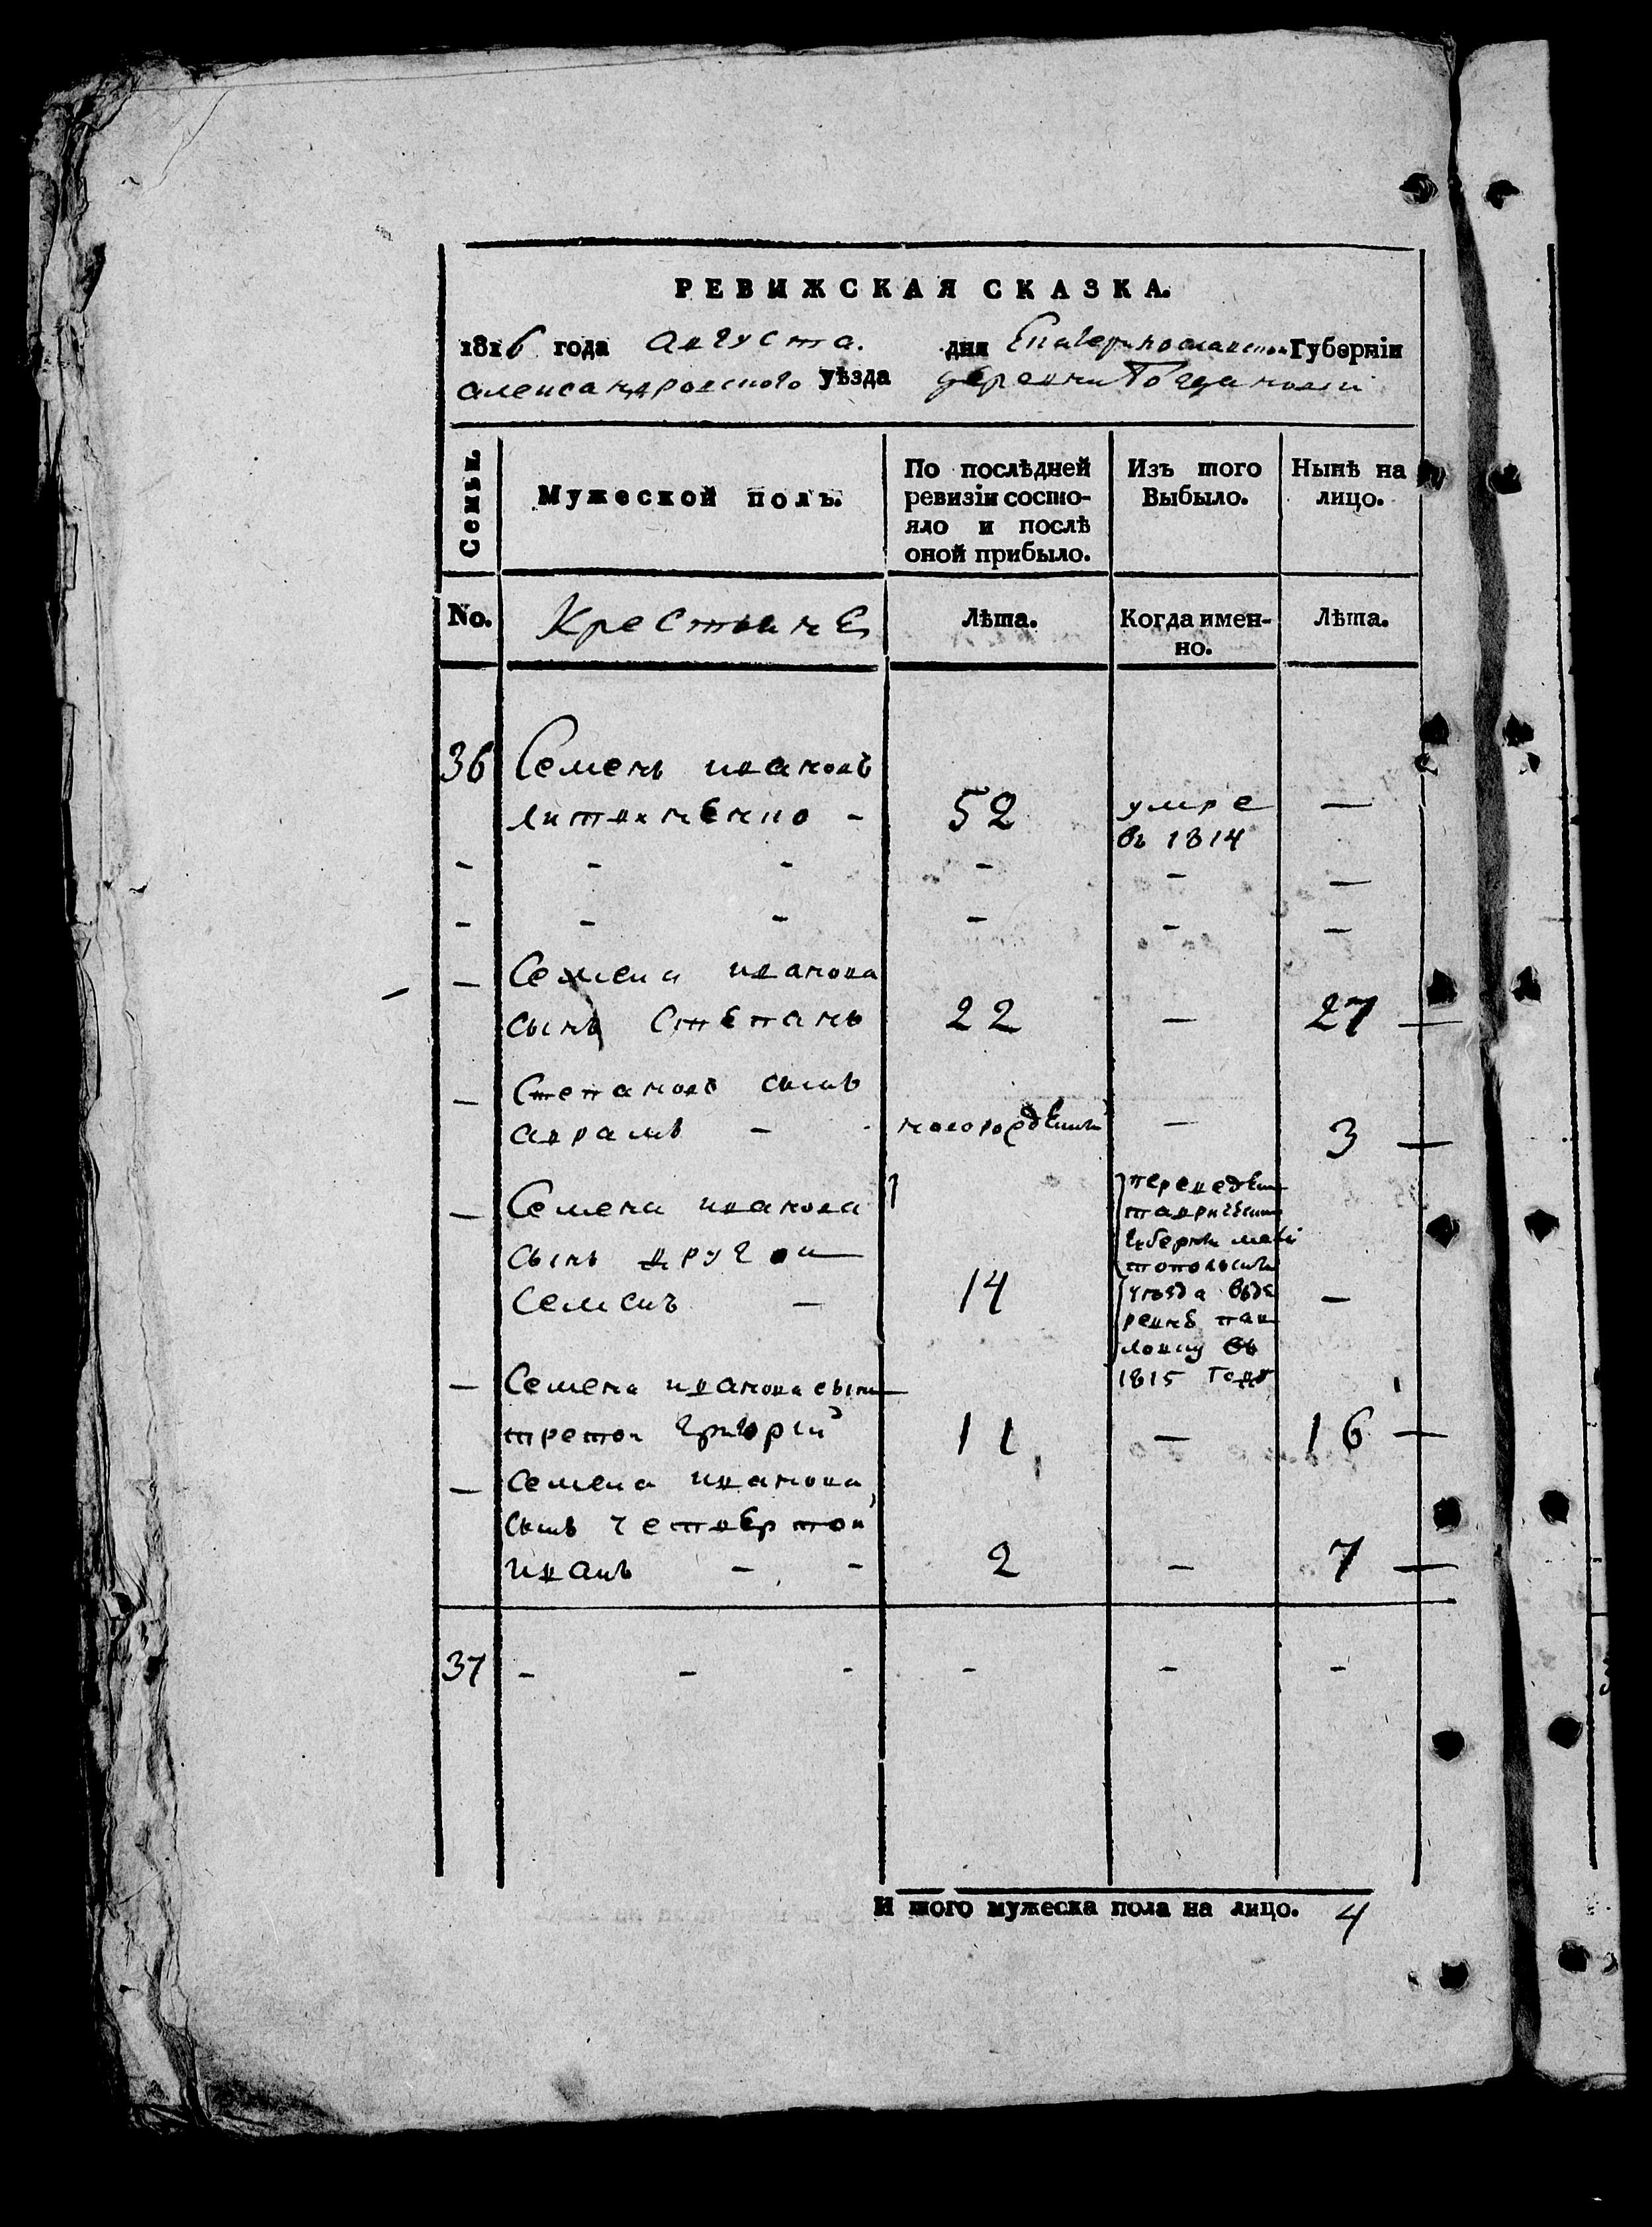 РЕВИЖСКАЯ СКАЗКА.
1816 года августа. дня Екатеринославской Губерніи
александровского уѣзда деревни Богдановки
Семьи.
Мужеской полъ.
По послѣдней ревизіи состо-
яло и послѣ
оной прибыло.
Изъ того
Выбыло.
Нынѣ на
лицо.
No. Крестьяне Лѣта. Когда имен-
но. Лѣта.
36 Семенъ ивановъ
литвиненко - 52 умре —
въ 1814
- - - - - —
- - - - - —
— Семена иванова
сынъ степанъ 22 — 27
— Степановъ сынъ
аврамъ - - новорожденный — 3
— Семена иванова
сынъ другои
семенъ — 14 —
переведенъ
таврической
губерніи мели
топольского
уѣзда въ де
ревнѣ пав
ловку въ
1815 году
— Семена иванова сынъ
третои григорій 11 — 16
— Семена иванова
сынъ четвертои
иванъ - - 2 — 7
37 - - - - - -
И того мужеска пола на лицо. 4